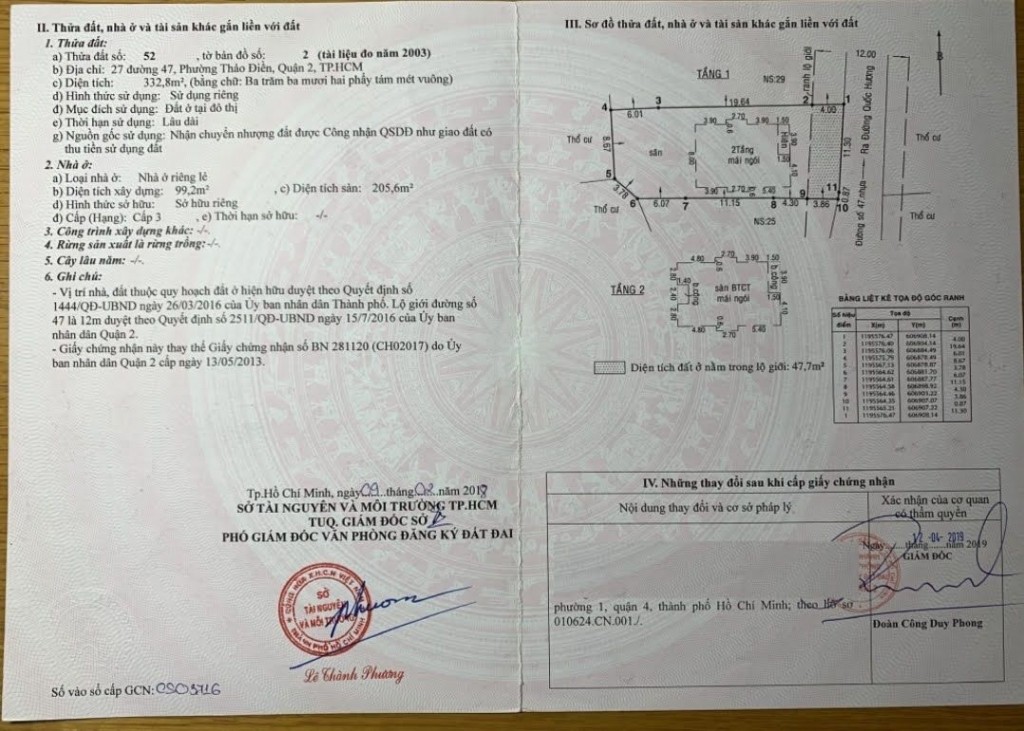 II. Thửa đất, nhà ở và tài sản khác gắn liền với đất
1. Thửa đất:
a) Thửa đất số: 52 , tờ bản đồ số: 2 (tài liệu đo năm 2003)
b) Địa chỉ: 27 đường 47, Phường Thảo Điền, Quận 2, TP.HCM
c) Diện tích: 332,8m², (bằng chữ: Ba trăm ba mươi hai phẩy tám mét vuông)
d) Hình thức sử dụng: Sử dụng riêng
đ) Mục đích sử dụng: Đất ở tại đô thị
e) Thời hạn sử dụng: Lâu dài
g) Nguồn gốc sử dụng: Nhận chuyển nhượng đất được Công nhận QSDĐ như giao đất có
thu tiền sử dụng đất
2. Nhà ở:
a) Loại nhà ở: Nhà ở riêng lẻ
b) Diện tích xây dựng: 99,2m² , c) Diện tích sàn: 205,6m²
d) Hình thức sở hữu: Sở hữu riêng
đ) Cấp (Hạng): Cấp 3 , e) Thời hạn sở hữu: -/-
3. Công trình xây dựng khác: -/-.
4. Rừng sản xuất là rừng trồng:-/-.
5. Cây lâu năm: -/-.
6. Ghi chú:
- Vị trí nhà, đất thuộc quy hoạch đất ở hiện hữu duyệt theo Quyết định số
1444/QĐ-UBND ngày 26/03/2016 của Ủy ban nhân dân Thành phố. Lộ giới đường số
47 là 12m duyệt theo Quyết định số 2511/QĐ-UBND ngày 15/7/2016 của Ủy ban
nhân dân Quận 2.
- Giấy chứng nhận này thay thế Giấy chứng nhận số BN 281120 (CH02017) do Ủy
ban nhân dân Quận 2 cấp ngày 13/05/2013.
Tp.Hồ Chí Minh, ngày 09..tháng 02..năm 2018
SỞ TÀI NGUYÊN VÀ MÔI TRƯỜNG TP.HCM
TUQ. GIÁM ĐỐC SỞ
PHÓ GIÁM ĐỐC VĂN PHÒNG ĐĂNG KÝ ĐẤT ĐAI
SỞ
TÀI NGUYÊN
VÀ MÔI TRƯỜNG
Lê Thành Phương
Số vào sổ cấp GCN:
III. Sơ đồ thửa đất, nhà ở và tài sản khác gắn liền với đất
TẦNG 1
NS:29
ranh lộ giới
12.00
B
4
3
2
1
6.01
19.64
4.00
Thổ cư
8.67
sân
3.90
2.70
3.90
1.50
2Tầng
mái ngói
Hiên
3.90
1.50
11.30
Đường số 47 nhựa
Ra Đường Quốc Hương
Thổ cư
5
3.78
3.90
2.70
5.40
9
11
0.87
Thổ cư
6
6.07
7
11.15
8
4.30
3.86
10
NS:25
Thổ cư
TẦNG 2
4.80
2.70
3.90
1.50
b.công
sàn BTCT
mái ngói
b.công
3.90
1.50
4.10
4.80
2.70
5.40
Diện tích đất ở nằm trong lộ giới: 47,7m²
BẢNG LIỆT KÊ TỌA ĐỘ GÓC RANH
Số hiệu điểm
Tọa độ
Cạnh (m)
X(m)
Y(m)
IV. Những thay đổi sau khi cấp giấy chứng nhận
Nội dung thay đổi và cơ sở pháp lý
Xác nhận của cơ quan
có thẩm quyền
12 -04- 2019
Ngày....tháng......năm 2019
GIÁM ĐỐC
phường 1, quận 4, thành phố Hồ Chí Minh; theo hồ sơ
010624.CN.001./.
Đoàn Công Duy Phong